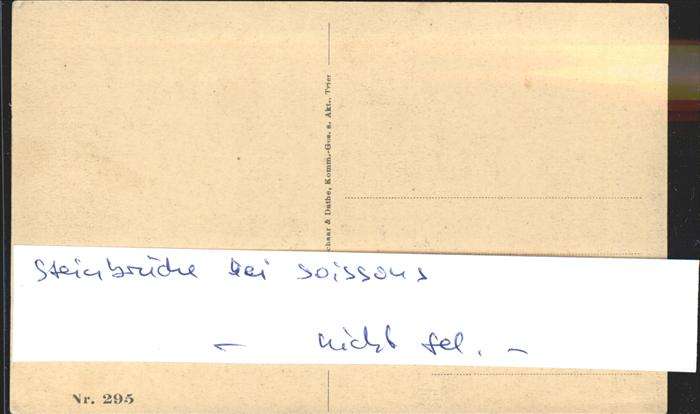 chaar & Dathe, Komm.-Ges. a. Akt., Trier
Steinbrüche bei Soissons
- nicht gel. -
Nr. 295